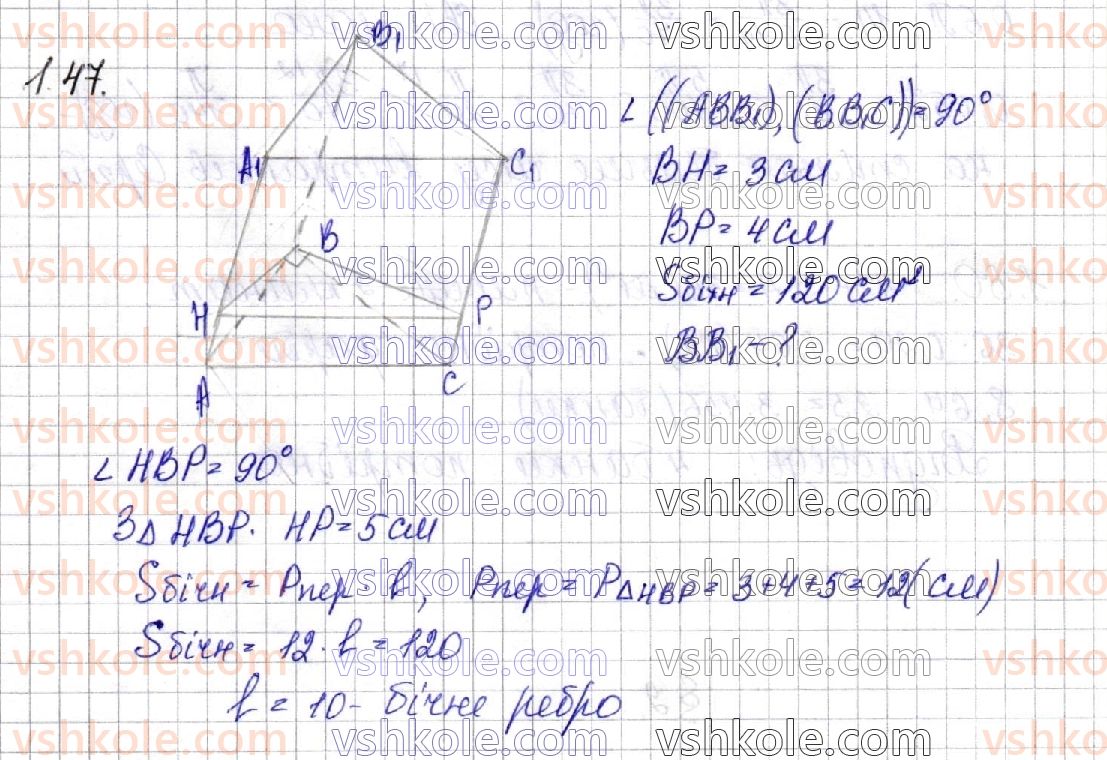 1.47.
B₁
A₁
C₁
B
H
P
A
C
∠((ABB₁), (BB₁C)) = 90°
BH = 3 см
BP = 4 см
Sбічн = 120 см²
BB₁ - ?
∠ HBP = 90°
З △ HBP. HP = 5 см
Sбічн = Pпер · l, Pпер = P△HBP = 3+4+5 = 12 (см)
Sбічн = 12 · l = 120
l = 10 - бічне ребро
vshkole.com